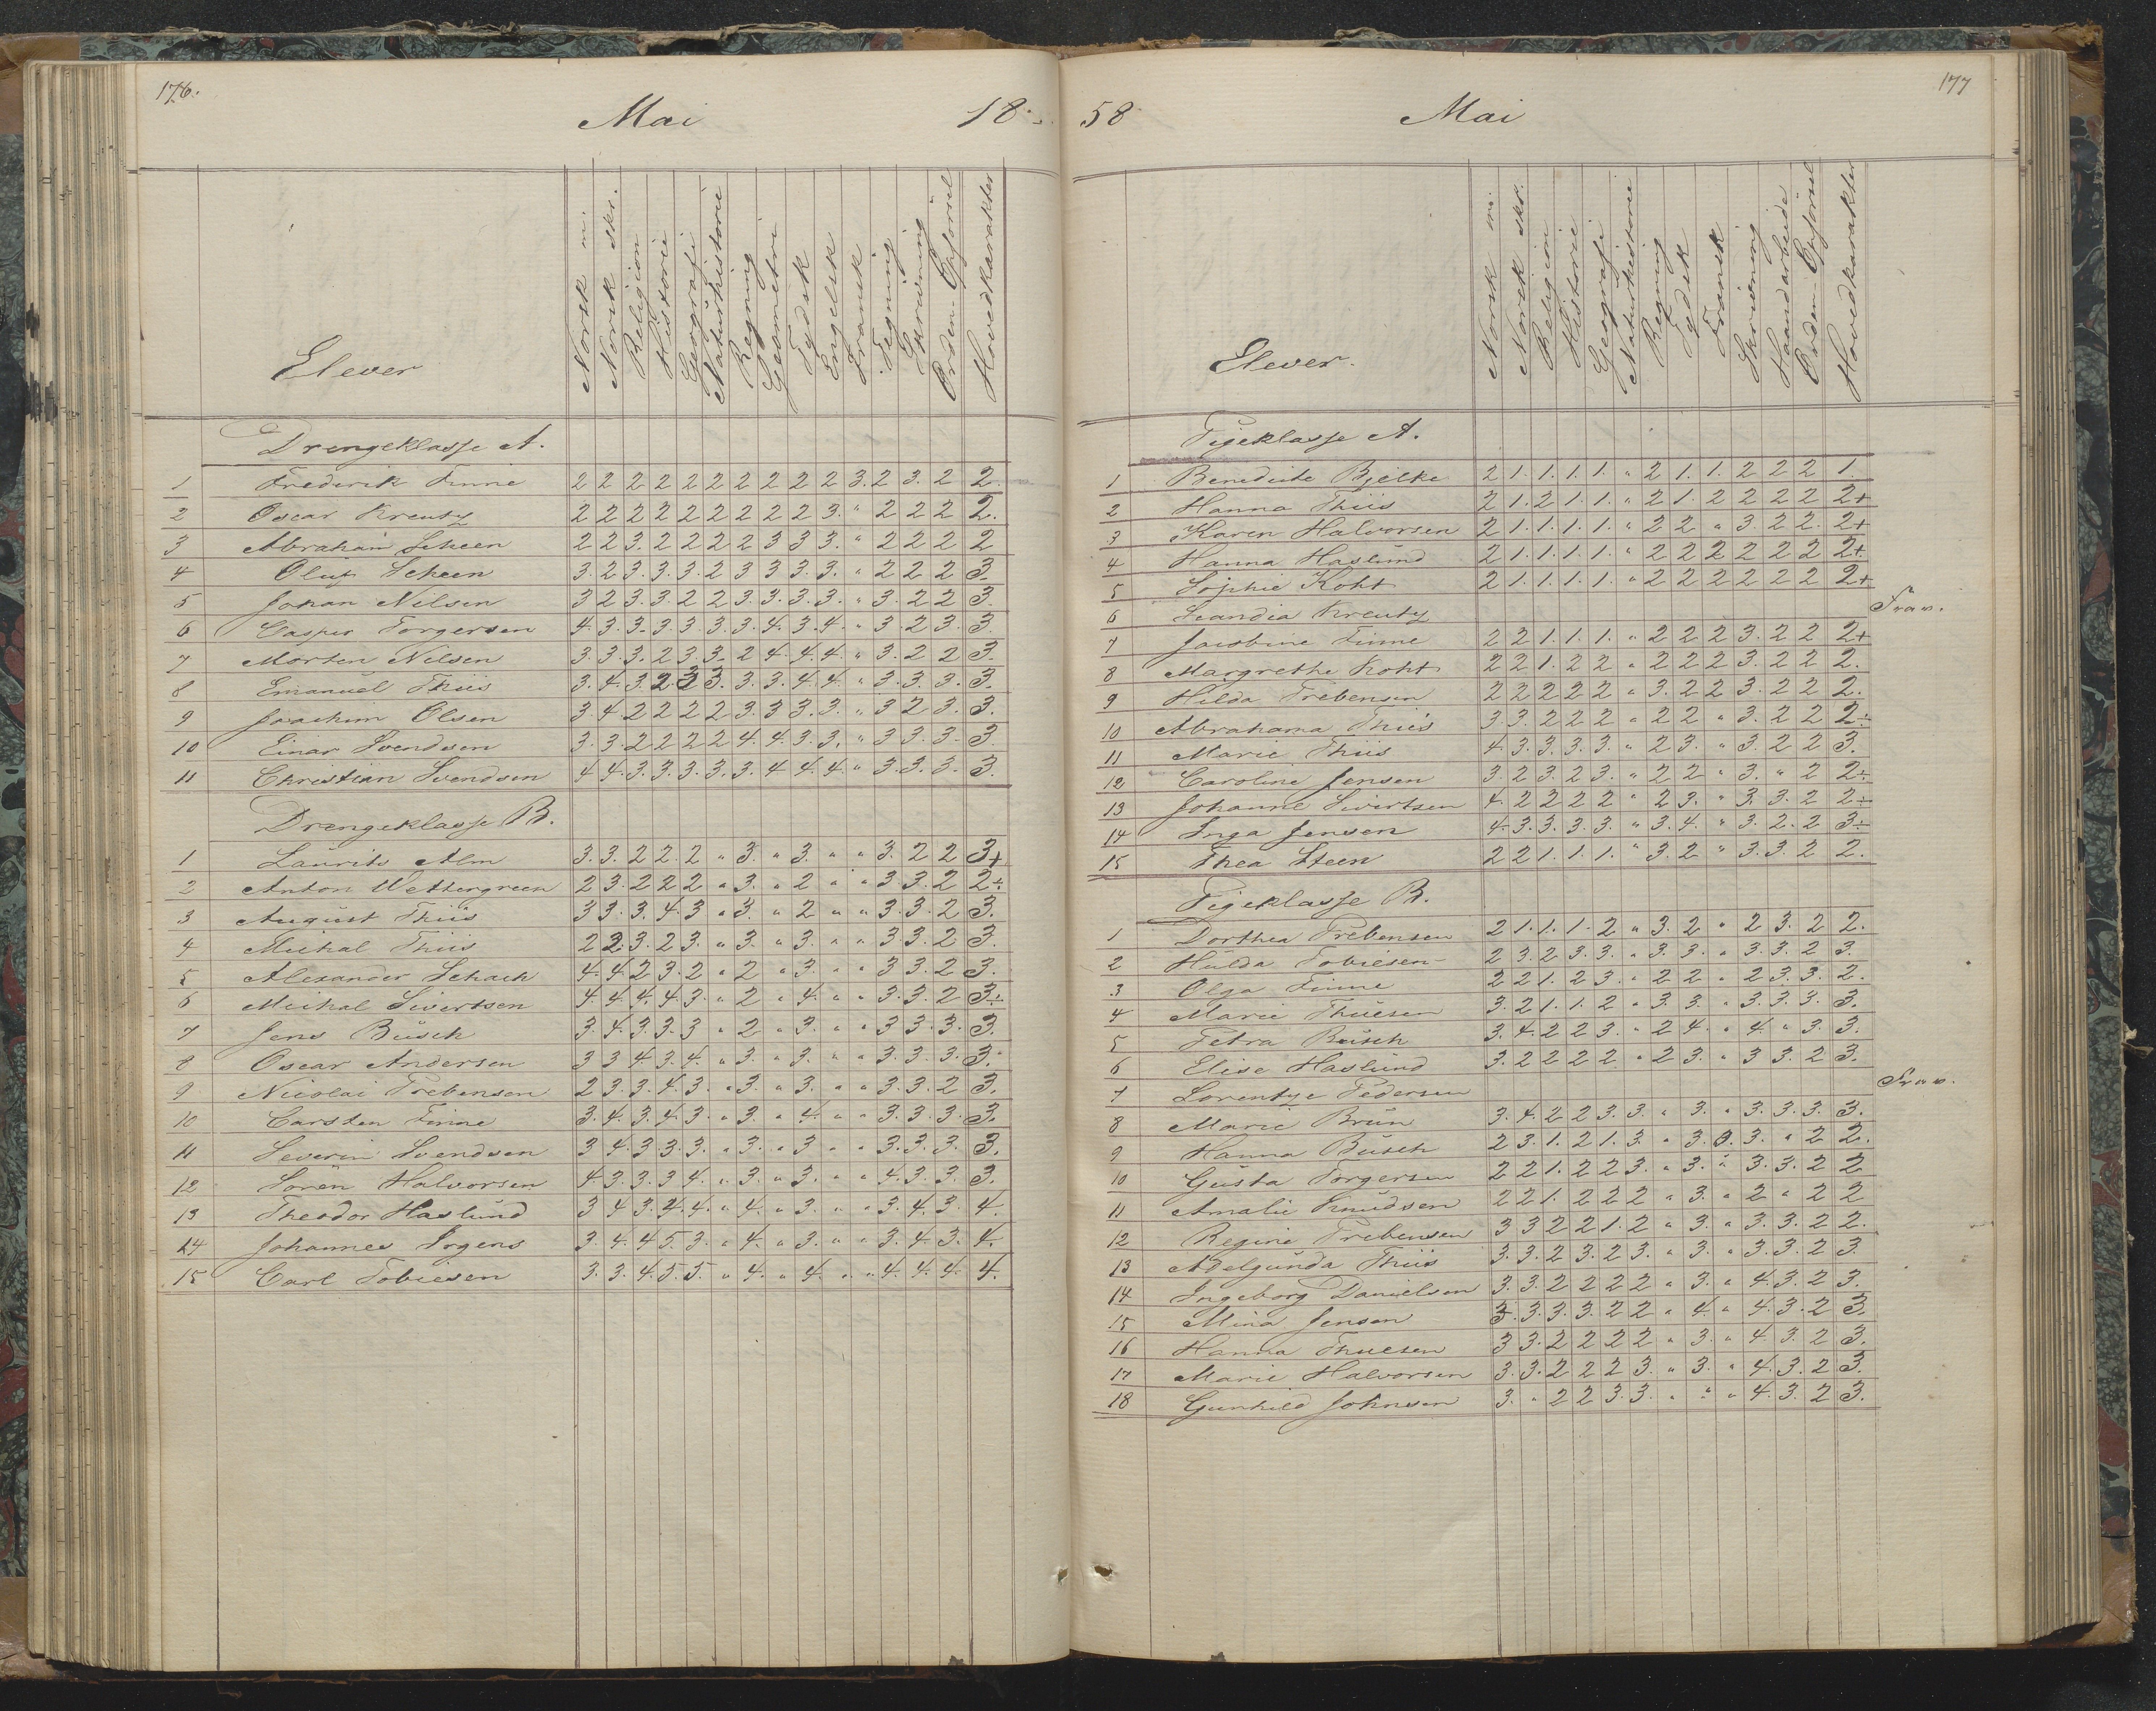 176.
Mai 18
Elever
Norsk m.
Norsk skr.
Religion
Historie
Geografi
Naturhistorie
Regning
Geometri
Tydsk
Engelsk
Fransk
Tegning
Skrivning
Orden-Opførsel
Hovedkarakter
Drengeklasse A.
1 Frederik Finne 2 2 2 2 2 2 2 2 2 2 3. 2 3. 2 2.
2 Oscar Kreutz 2 2 2 2 2 2 2 2 2 3. " 2 2 2 2.
3 Abraham Scheen 2 2 3. 2 2 2 2 3 3 3. " 2 2 2 2
4 Oluf Scheen 3. 2 3. 3. 3. 2 3 3 3. 3. " 2 2 2 3.
5 Johan Nilsen 3 2 3. 3. 2 2 3. 3. 3. 3. " 3. 2 2 3.
6 Casper Torgersen 4. 3. 3. 3. 3. 3. 3. 4. 3. 4. " 3. 2 3. 3.
7 Morten Nilsen 3. 3. 3. 2 3 3. 2 4. 4. 4. " 3. 2 2 3.
8 Emanuel Thiis 3. 4. 3. 2 3 3. 3. 3. 4. 4. " 3. 3. 3. 3.
9 Joachim Olsen 3. 4. 2 2 2 2 3. 3 3. 3. " 3 2 3. 3.
10 Einar Svendsen 3. 3. 2 2 2 2 4. 4. 3. 3. " 3 3. 3. 3.
11 Christian Svendsen 4 4. 3. 3. 3. 3. 3. 4 4. 4. " 3. 3. 3. 3.
Drengeklasse B.
1 Laurits Alm 3. 3. 2 2. 2 " 3. " 3. " " 3. 2 2 3+
2 Anton Wettergreen 2 3. 2 2 2 " 3. " 2 " " 3. 3. 2 2÷
3 August Thiis 3 3. 3. 4. 3 " 3. " 2 " " 3. 3. 2 3.
4 Michal Thiis 2 2. 3. 2 3. " 3. " 3. " " 3 3. 2 3.
5 Alexander Schach 4. 4. 2 3. 2 " 2 " 3. " " 3 3. 2 3.
6 Michal Sivertsen 4. 4. 4. 4 3. " 2 " 4. " " 3. 3. 2 3÷
7 Jens Busch 3. 4. 3. 3. 3 " 2 " 3. " " 3 3. 3. 3.
8 Oscar Andersen 3 3 4. 3. 4. " 3. " 3. " " 3. 3. 3. 3.
9 Nicolai Prebensen 2 3. 3. 4. 3. " 3. " 3. " " 3. 3. 2 3.
10 Carsten Finne 3. 4. 3. 4. 3 " 3 " 4. " " 3. 3. 3. 3.
11 Severin Svendsen 3 4. 3 3. 3. " 3. " 3 " " 3. 3. 3. 3.
12 Søren Halvorsen 4. 3. 3. 3 4. " 3. " 3. " " 4. 3. 3. 3.
13 Theodor Haslund 3 4 3. 4. 4. " 4. " 3. " " 3. 4. 3. 4.
14 Johannes Irgens 3. 4. 4 5. 3. " 4. " 3. " " 3. 4. 3. 4.
15 Carl Tobiesen 3. 3. 4. 5. 5. " 4. " 4. " " 4. 4. 4. 4.
177
58 Mai
Elever.
Norsk m.
Norsk skr.
Religion
Historie
Geografi
Naturhistorie
Regning
Tydsk
Fransk
Skrivning
Haandarbeide
Orden-Opførsel
Hovedkarakter
Pigeklasse A.
1 Benedicte Bjelke 2 1. 1. 1. 1. " 2 1. 1. 2 2 2 1.
2 Hanna Thiis 2 1. 2 1. 1. " 2 1. 2 2 2 2 2+
3 Karen Halvorsen 2 1. 1. 1. 1. " 2 2 " 3. 2 2. 2+
4 Hanna Haslund 2 1. 1. 1. 1. " 2 2 2 2 2 2 2+
5 Sophie Koht 2 1. 1. 1. 1. " 2 2 2 2 2 2 2+
6 Scandia Kreutz Frav.
7 Jacobine Finne 2 2 1. 1. 1. " 2 2 2 3. 2 2 2+
8 Margrethe Koht 2 2 1. 2 2 " 2 2 2 3. 2 2 2.
9 Hilda Prebensen 2 2 2 2 2 " 3. 2 2 3. 2 2 2.
10 Abrahama Thiis 3. 3. 2 2 2 " 2 2 " 3. 2 2 2÷
11 Marie Thiis 4. 3. 3. 3. 3. " 2 3. " 3. 2 2 3.
12 Caroline Jensen 3. 2 3. 2 3. " 2 2 " 3. " 2 2÷
13 Johanne Sivertsen 4. 2 2 2 2 " 2 3. " 3. 3. 2 2÷
14 Inga Jensen 4. 3. 3. 3. 3. " 3. 4. " 3. 2. 2 3÷
15 Thea Steen 2 2 1. 1. 1. " 3. 2 " 3. 3. 2 2.
Pigeklasse B.
1 Dorthea Prebensen 2 1. 1. 1. 2 " 3. 2 " 2 3. 2 2.
2 Hulda Tobiesen 2 3. 2 3. 3. " 3. 3. " 3. 3. 2 3.
3 Olga Finne 2 2 1. 2 3. " 2 2 " 2 3. 3. 2.
4 Marie Thuesen 3. 2 1. 1. 2 " 3. 3. " 3. 3. 3. 3.
5 Petra Busch 3. 4. 2 2 3. " 2 4. " 4. " 3. 3.
6 Elise Haslund 3. 2 2 2 2 " 2 3. " 3 3. 2 3.
7 Lorentze Pedersen Frav.
8 Marie Brun 3. 4. 2 2 3. 3. " 3. " 3. 3. 3. 3.
9 Hanna Busch 2 3. 1. 2 1. 3. " 3. 0. 3. " 2 2.
10 Gusta Torgersen 2 2 1. 2 2 3. " 3. " 3. 3. 2 2
11 Amalie Knudsen 2 2 1. 2 2 2 " 3. " 2 " 2 2
12 Regine Prebensen 3 3 2 2 1. 2 " 3. " 3. 3. 2 2.
13 Adelgunda Thiis 3. 3. 2 3. 2 3. " 3. " 3. 3. 2 3.
14 Ingeborg Danielsen 3. 3. 2 2 2 2 " 3. " 4. 3. 2 3.
15 Mina Jensen 3. 3. 3. 3. 2 2 " 4. " 4. 3. 2 3.
16 Hanna Thuesen 3 3. 2 2 2 2 " 3. " 4. 3. 2 3.
17 Marie Halvorsen 3. 3. 2 2 2 3. " 3. " 4. 3. 2 3.
18 Gunhild Johnsen 3. " 2 2 3. 3. " " " 4. 3. 2 3.